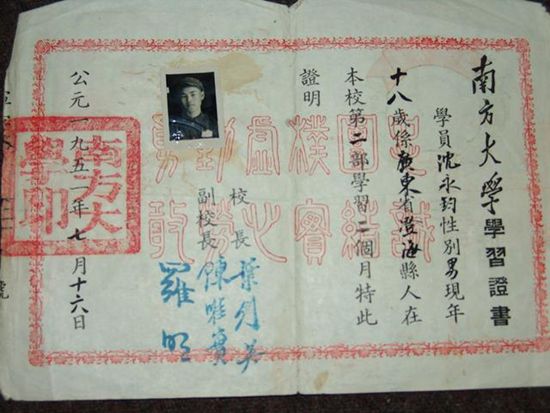 南方大學學習證書
學員沈永性別男現年
十八歲係廣東省澄海縣人在
本校第二部學習二個月特此
證明
忠誠
團結
樸實
虛心
勤勞
勇敢
校長 葉劍英
副校長 陳唯實
羅明
公元一九五一年七月十六日
南方大
學印
號